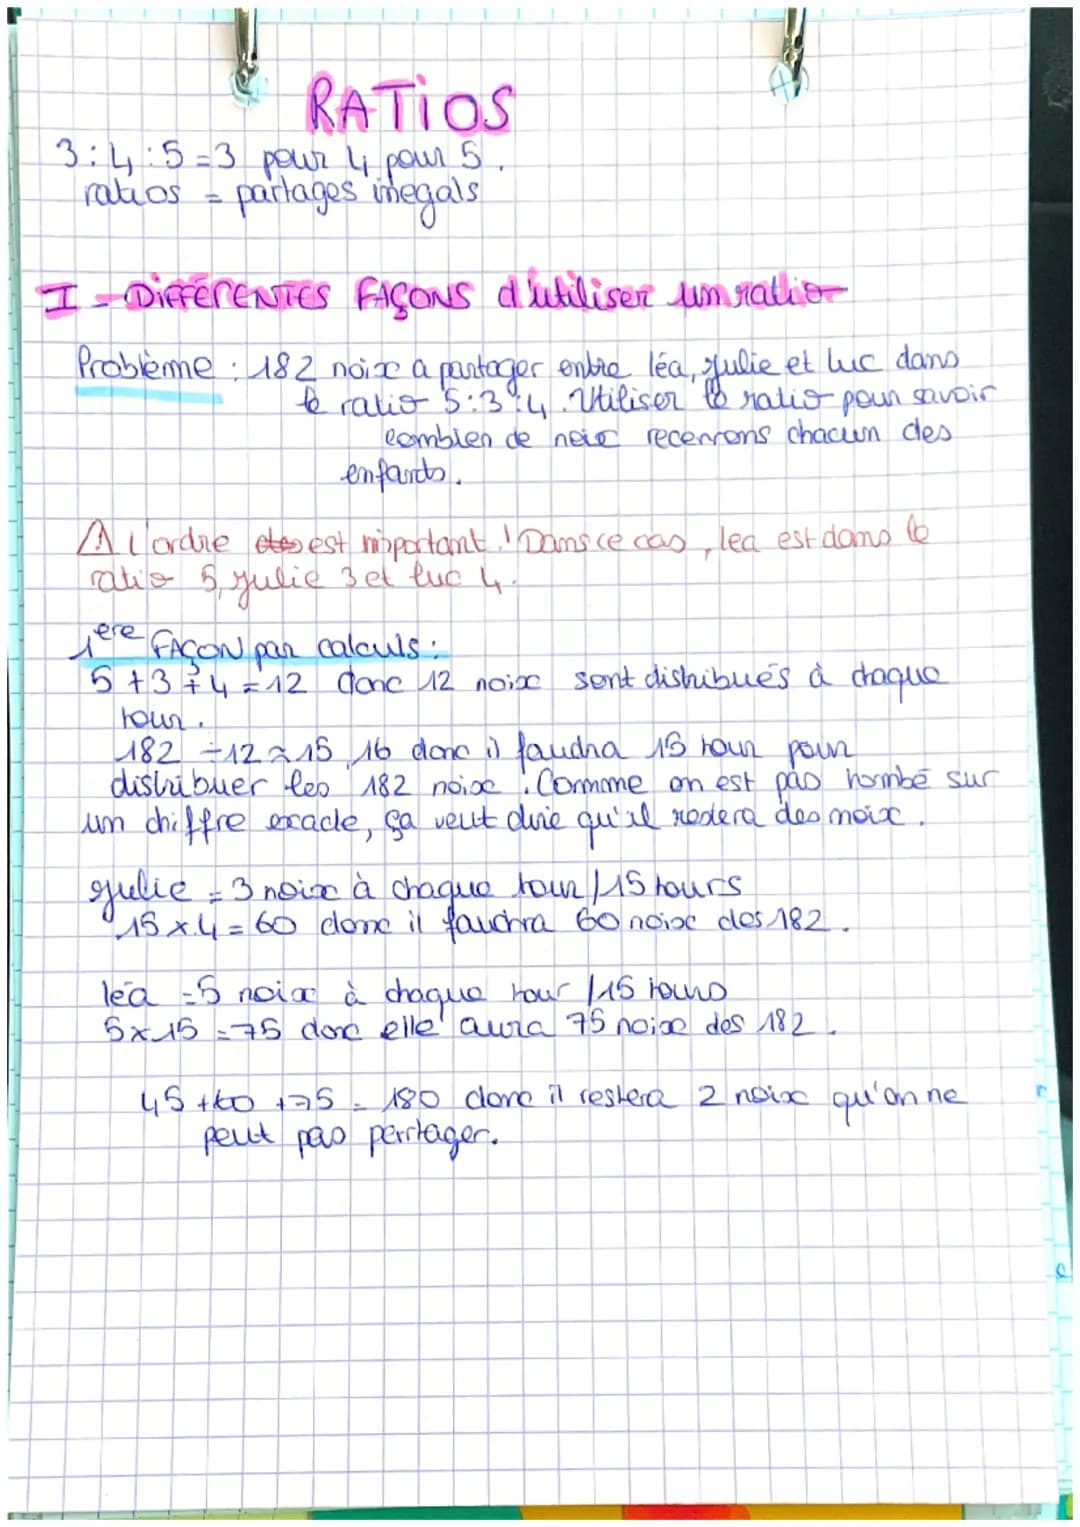 RATIOS
3:4:5=3 pour 4 pour 5.
ratios = partages inegals
I - DIFFÉRENTES FAÇONS d'utiliser un ratio
Problème : 182 noix a partager entre léa, Julie et luc dans
le ratio 5:3:4. Utiliser le ratio pour savoir
combien de noix recevrons chacun des
enfants.
⚠ L'ordre est important ! Dans ce cas, lea est dans le
ratio 5, Julie 3 et luc 4.
1ere FAÇON par calculs :
5+3+4=12 donc 12 noix sont distribués à chaque
tour.
182 ÷12≈15,16 donc il faudra 15 tour pour
distribuer les 182 noix. Comme on est pas tombé sur
un chiffre exacte, ça veut dire qu'il restera des noix.
Julie = 3 noix à chaque tour /15 tours
15×4=60 donc il faudra 60 noix des 182.
léa =5 noix à chaque tour /15 tours
5×15=75 donc elle aura 75 noix des 182.
45+60+75=180 donc il restera 2 noix qu'on ne
peut pas partager.